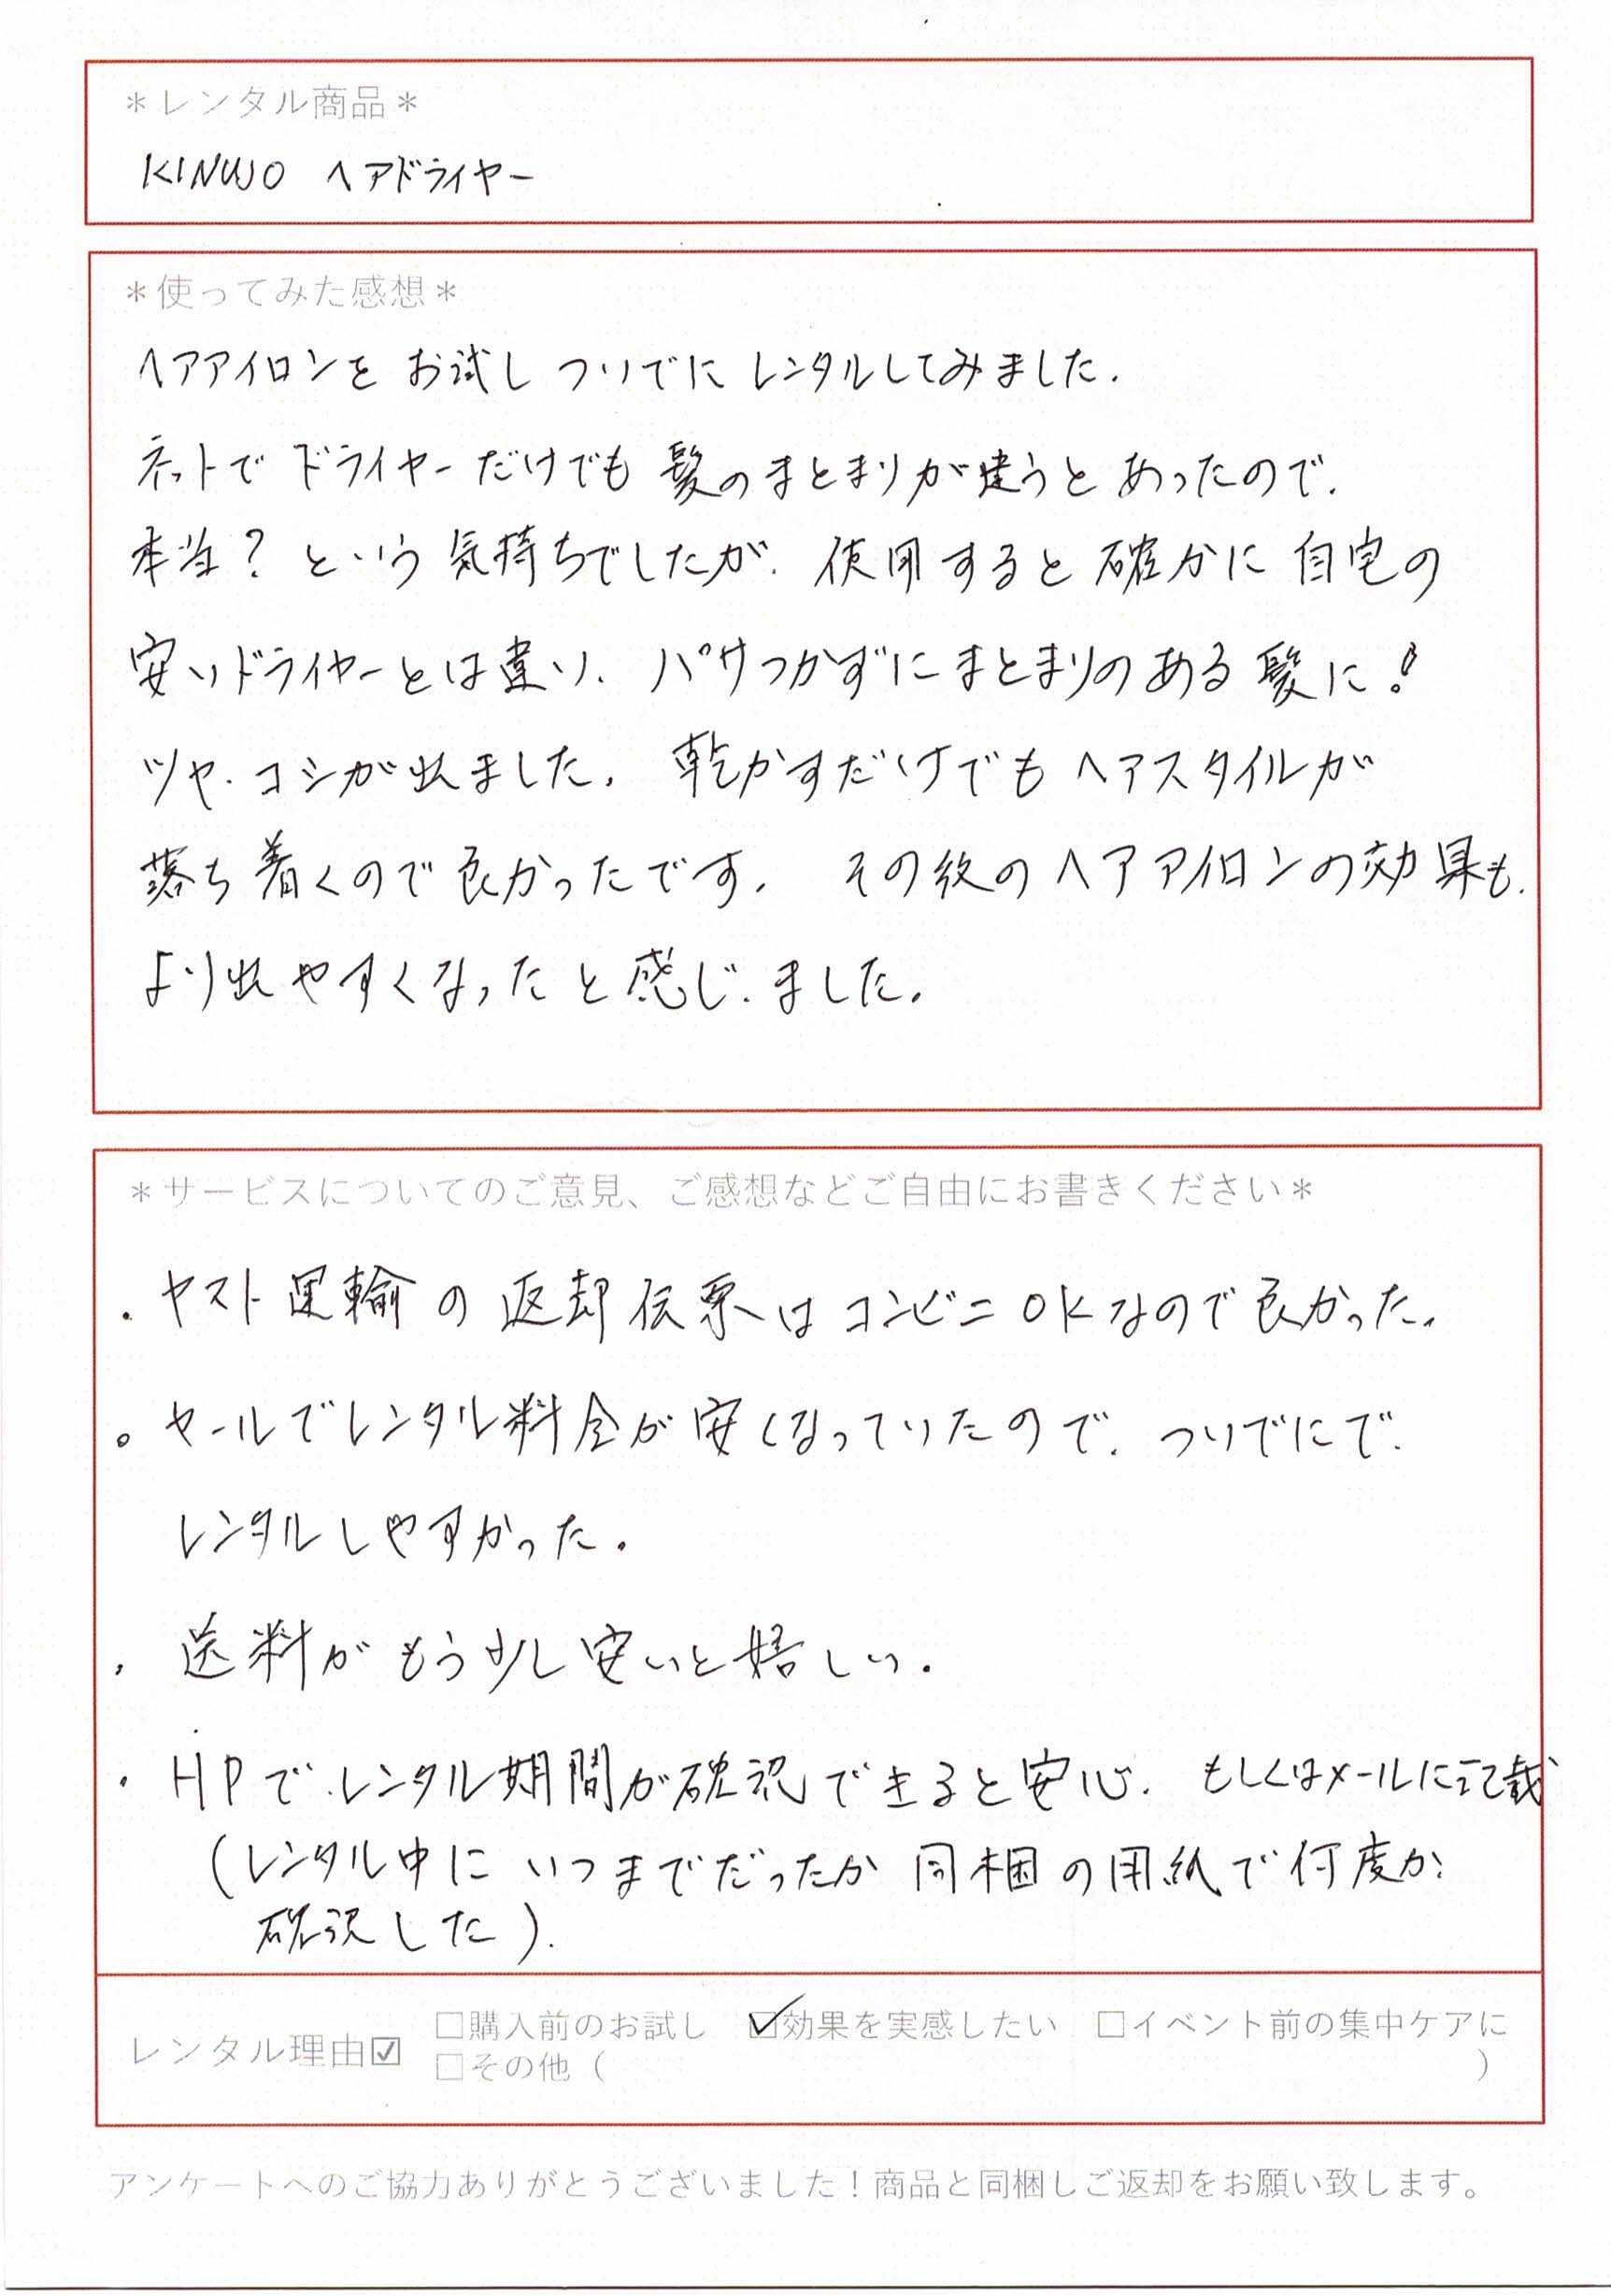 *レンタル商品*
KINUJO ヘアドライヤー
*使ってみた感想*
ヘアアイロンをお試しついでにレンタルしてみました.
ネットでドライヤーだけでも髪のまとまりが違うとあったので.
本当?という気持ちでしたが.使用すると確かに自宅の
安いドライヤーとは違い.パサつかずにまとまりのある髪に!
ツヤ.コシが出ました.乾かすだけでもヘアスタイルが
落ち着くので良かったです.その後のヘアアイロンの効果も.
より出やすくなったと感じました.
*サービスについてのご意見、ご感想などご自由にお書きください*
・ヤマト運輸の返却伝票はコンビニOKなので良かった.
。セールでレンタル料金が安くなっていたので.ついでにで.
レンタルしやすかった.
・送料がもう少し安いと嬉しい.
・HPでレンタル期間が確認できると安心.もしくはメールに記載
(レンタル中にいつまでだったか同梱の用紙で何度か
確認した).
レンタル理由☑ □購入前のお試し ☑効果を実感したい □イベント前の集中ケアに
□その他( )
アンケートへのご協力ありがとうございました!商品と同梱しご返却をお願い致します。